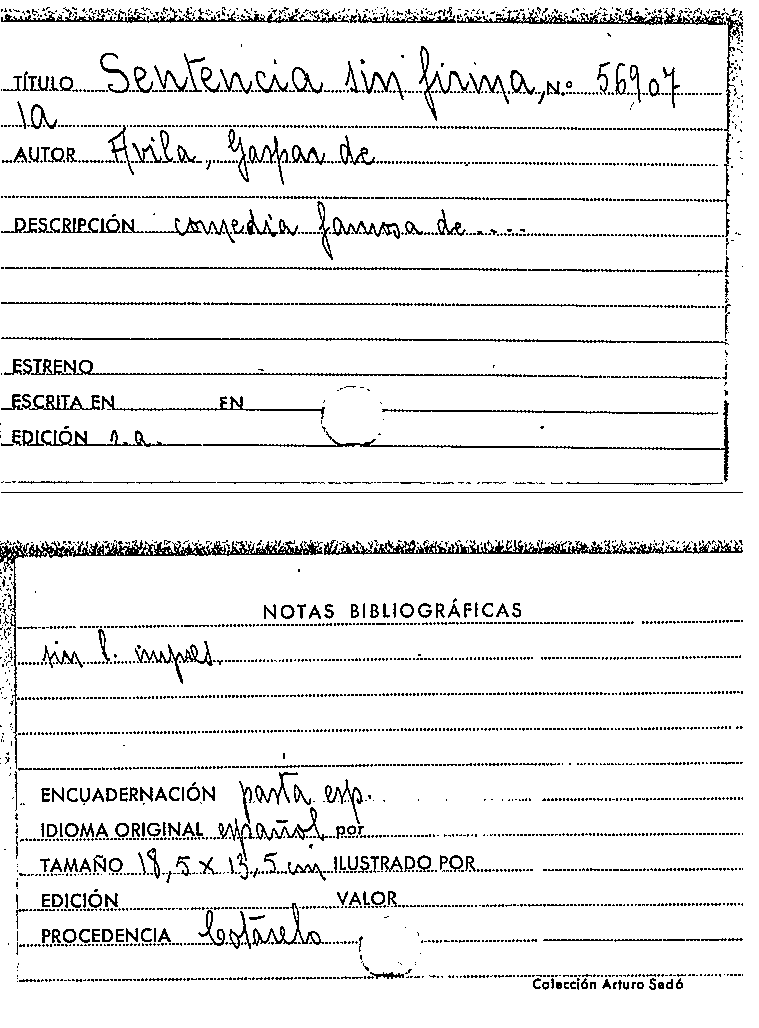 TÍTULO Sentencia sin firma, N.º 56907
la
AUTOR Avila, Gaspar de
DESCRIPCIÓN comedia famosa de ....
ESTRENO
ESCRITA EN EN
EDICIÓN s.a.
NOTAS BIBLIOGRÁFICAS
sin l. impres.
ENCUADERNACIÓN pasta esp.
IDIOMA ORIGINAL español por
TAMAÑO 18,5 x 13,5 cm ILUSTRADO POR
EDICIÓN VALOR
PROCEDENCIA Cotarelo
Colección Arturo Sedó